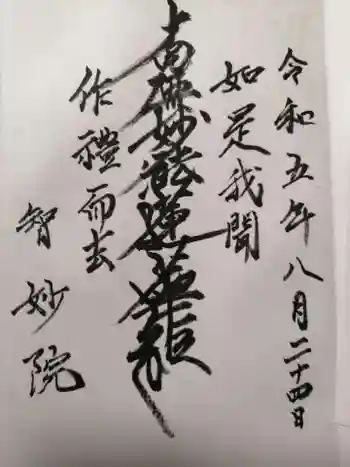 令和五年八月二十四日
如是我聞
南無妙法蓮華経
作禮而去
智妙院